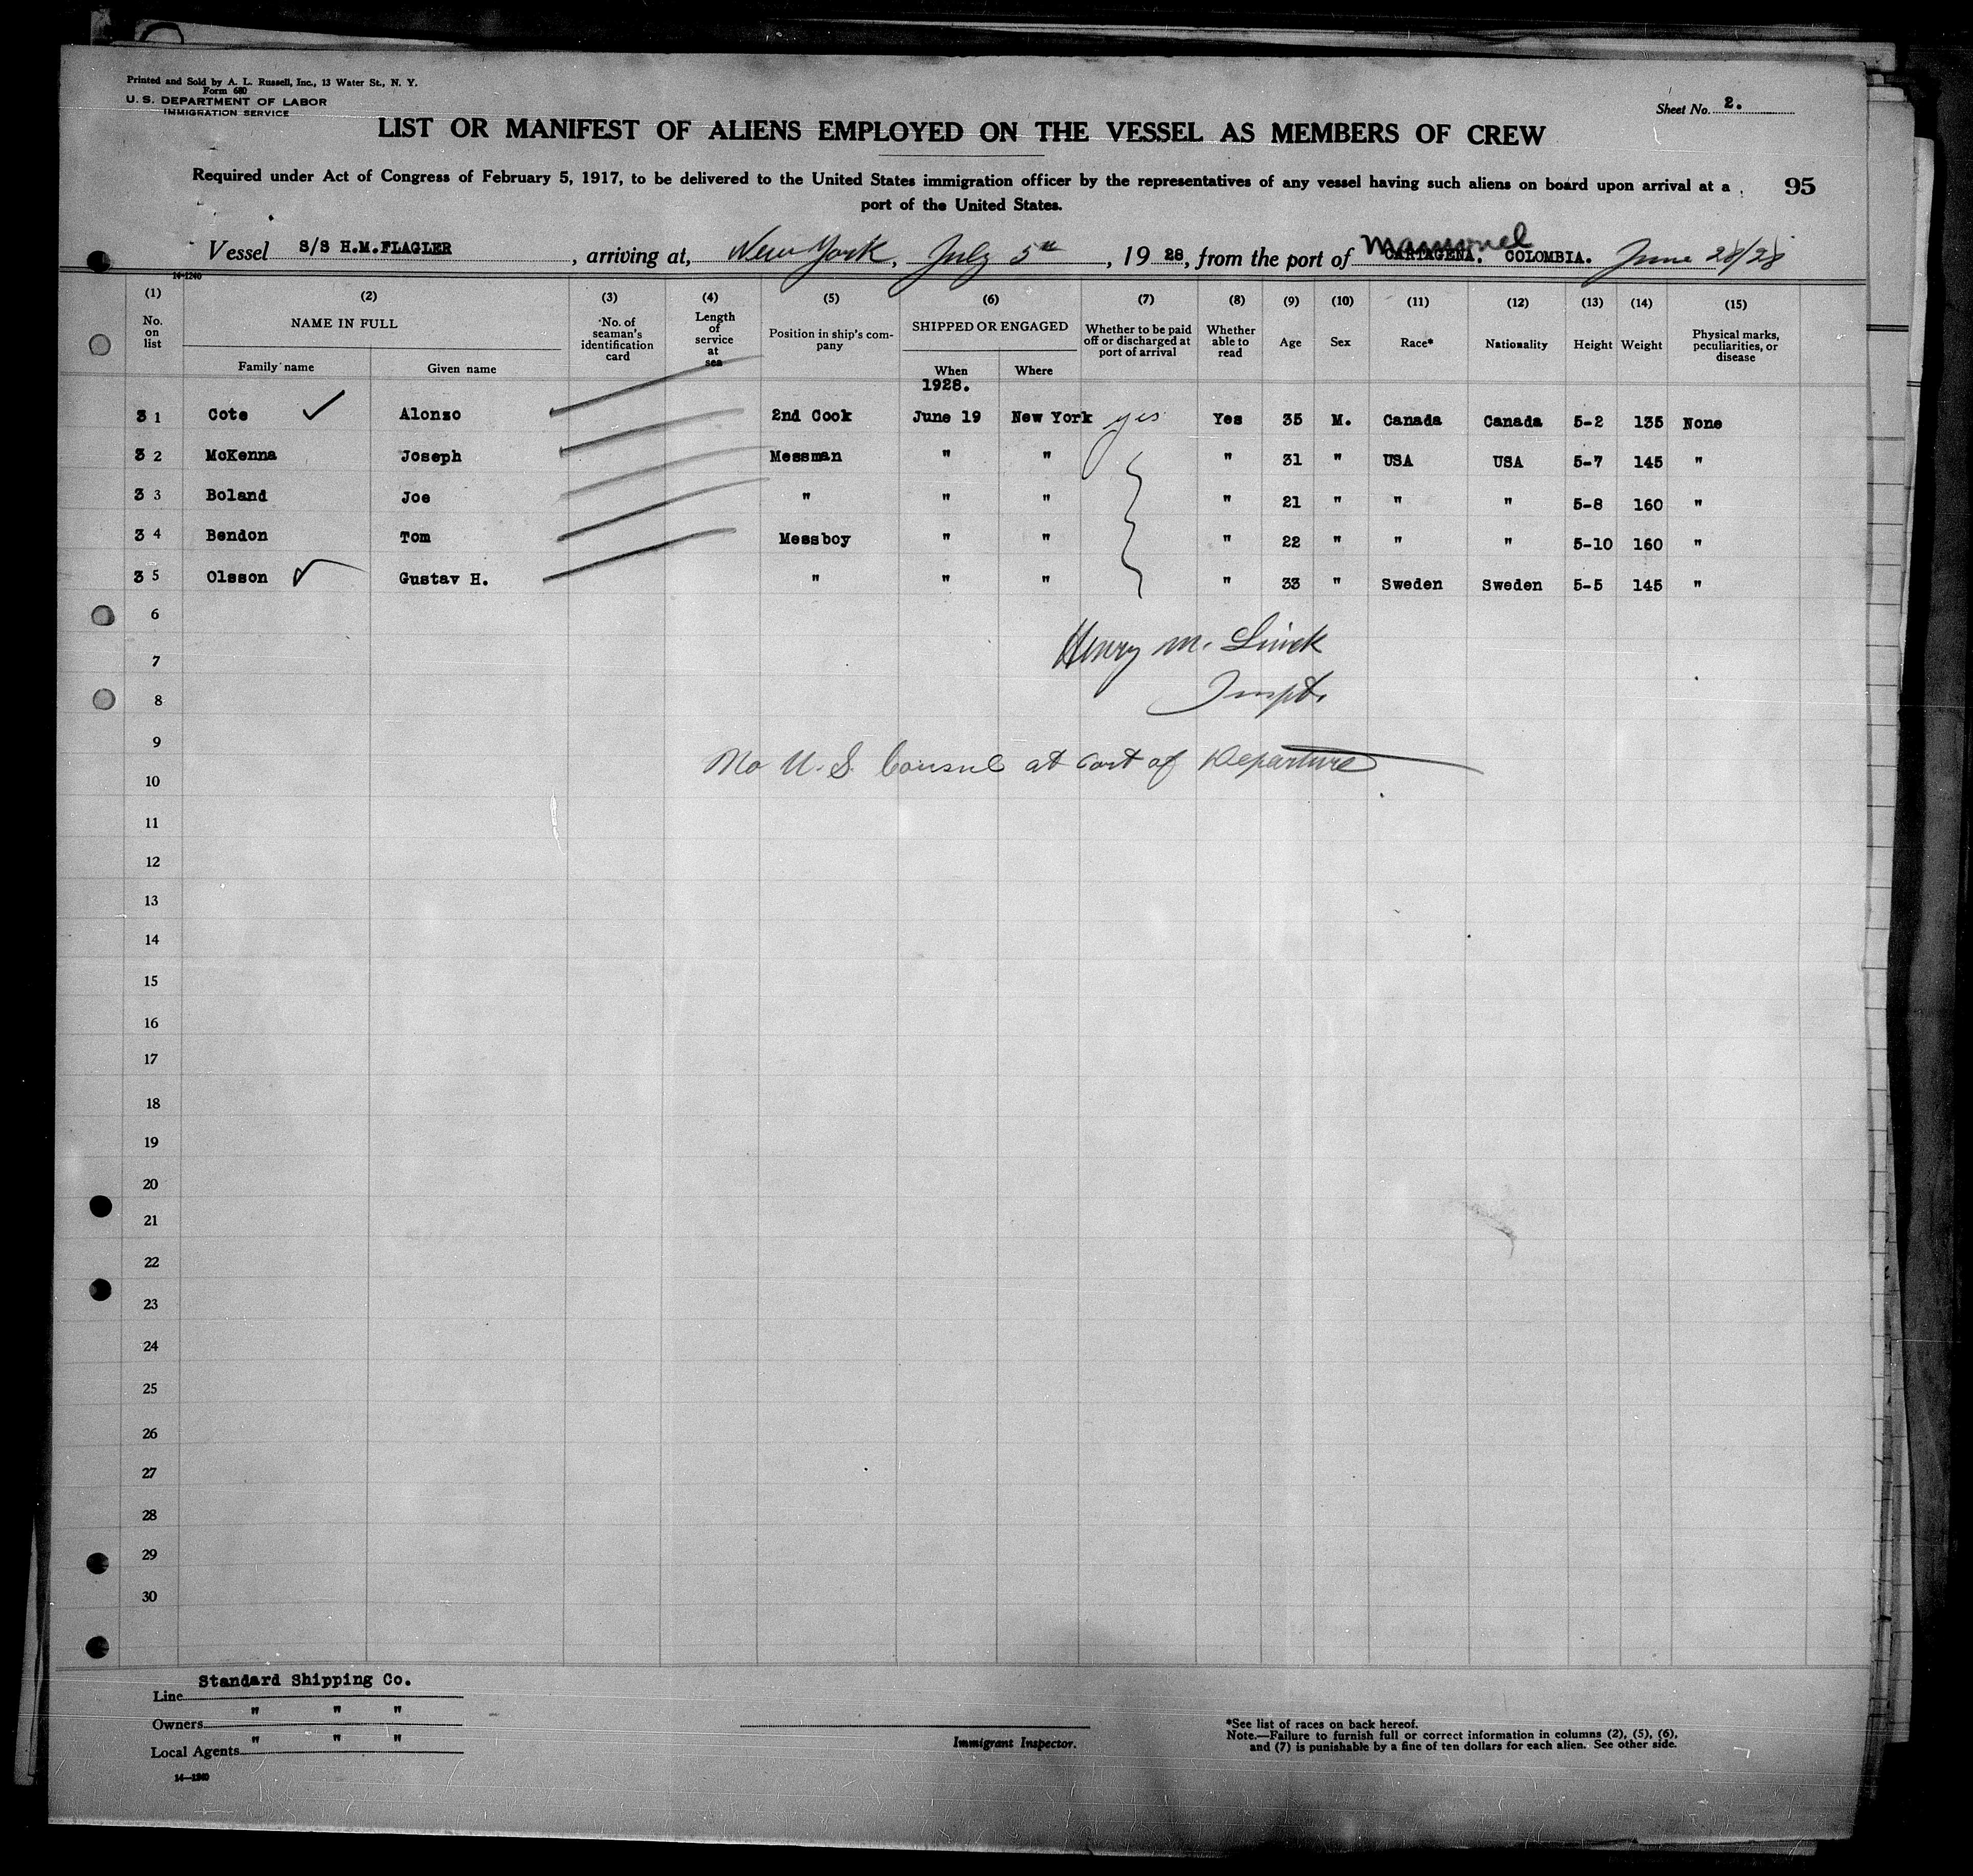 Printed and Sold by A. L. Russell, Inc., 13 Water St., N. Y.
Form 680
U. S. DEPARTMENT OF LABOR
IMMIGRATION SERVICE
Sheet No. 2.
LIST OR MANIFEST OF ALIENS EMPLOYED ON THE VESSEL AS MEMBERS OF CREW
Required under Act of Congress of February 5, 1917, to be delivered to the United States immigration officer by the representatives of any vessel having such aliens on board upon arrival at a
port of the United States.
95
Vessel S/S H.M.FLAGLER, arriving at, New York, July 5th, 19 28, from the port of Mamonel CARTAGENA, COLOMBIA. June 28/28
14-1240
(1) (2) (3) (4) (5) (6) (7) (8) (9) (10) (11) (12) (13) (14) (15)
No. on list NAME IN FULL No. of seaman's identification card Length of service at sea Position in ship's company SHIPPED OR ENGAGED Whether to be paid off or discharged at port of arrival Whether able to read Age Sex Race* Nationality Height Weight Physical marks, peculiarities, or disease
Family name Given name When Where
1928.
3 1 Cote Alonzo 2nd Cook June 19 New York yes Yes 35 M. Canada Canada 5-2 135 None
3 2 McKenna Joseph Messman " " " 31 " USA USA 5-7 145 "
3 3 Boland Joe " " " " 21 " " " 5-8 160 "
3 4 Bendon Tom Messboy " " " 22 " " " 5-10 160 "
3 5 Olsson Gustav H. " " " " 33 " Sweden Sweden 5-5 145 "
6
Henry M. Linck
7
Inspt.
8
9
No U. S. Consul at Port of Departure
10
11
12
13
14
15
16
17
18
19
20
21
22
23
24
25
26
27
28
29
30
Standard Shipping Co.
Line
" " "
Owners
" " "
Local Agents
Immigrant Inspector.
*See list of races on back hereof.
Note.—Failure to furnish full or correct information in columns (2), (5), (6),
and (7) is punishable by a fine of ten dollars for each alien. See other side.
14—1240